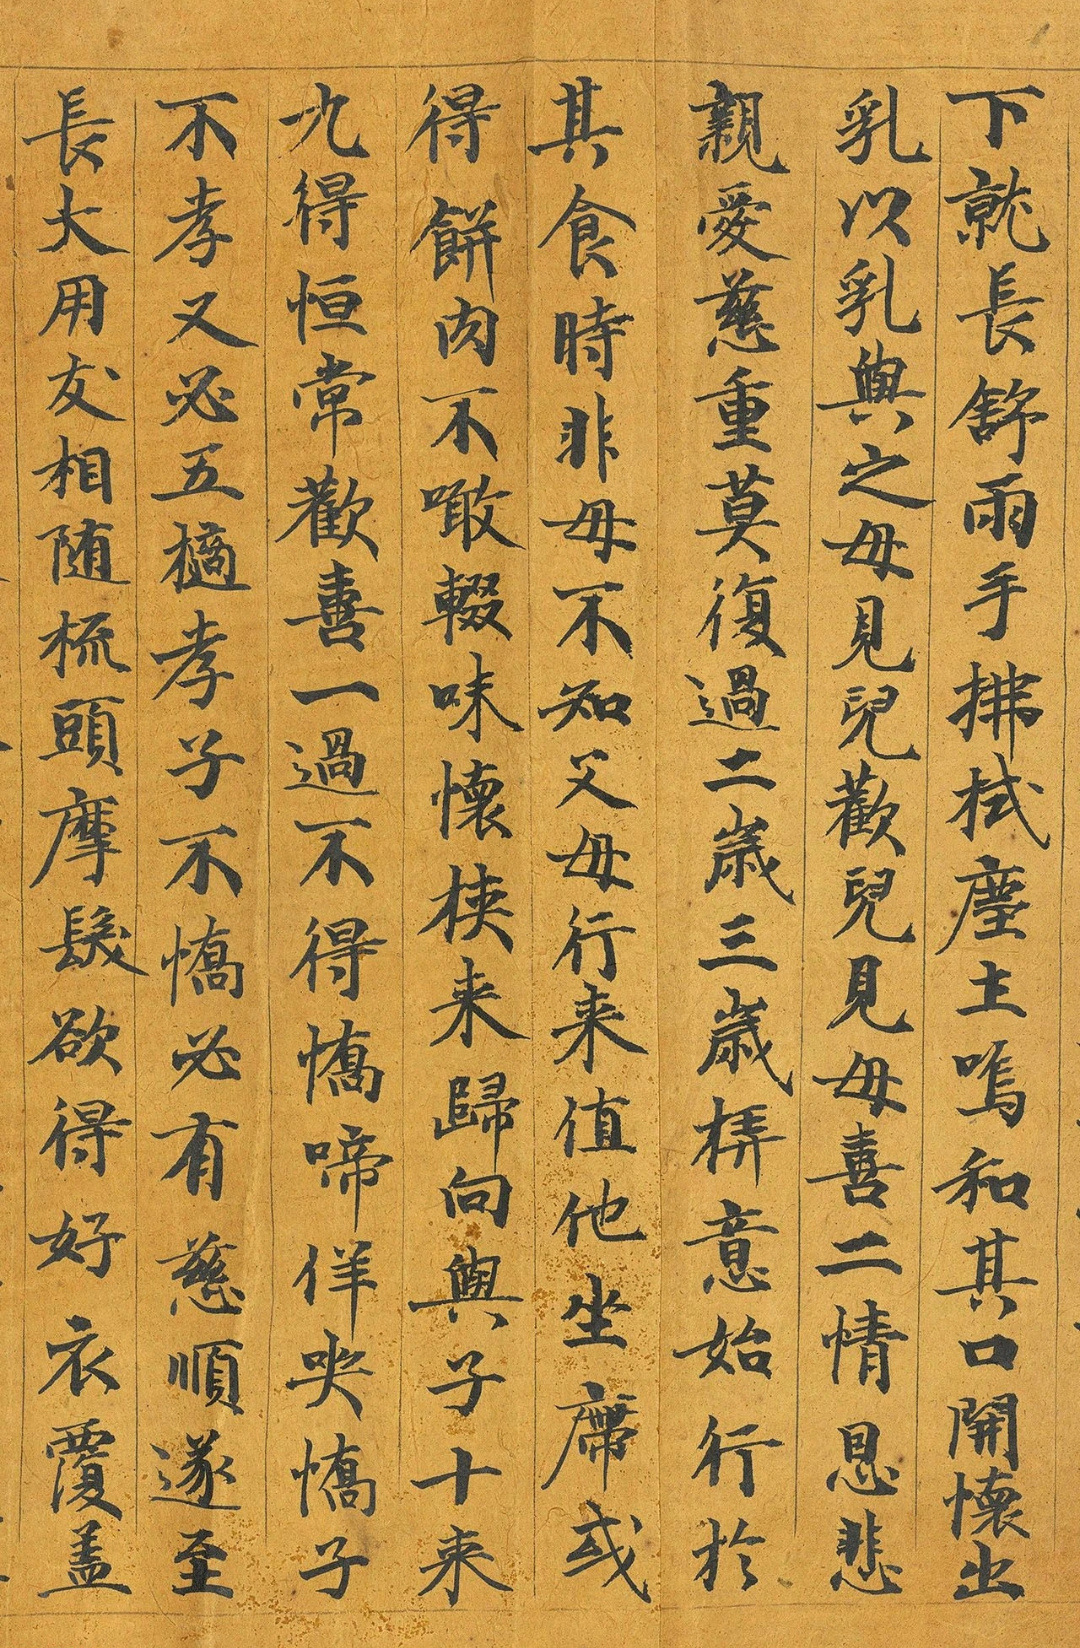 下就長舒兩手拂拭塵土嗚和其口開懷出
乳以乳與之母見兒歡兒見母喜二情恩悲
親愛慈重莫復過二歲三歲拼意始行於
其食時非母不知父母行来值他坐席或
得餅肉不噉輟味懷挾来歸向與子十来
九得恒常歡喜一過不得憍啼佯哭憍子
不孝又必五擿孝子不憍必有慈順遂至
長大用友相随梳頭摩髮欲得好衣覆盖